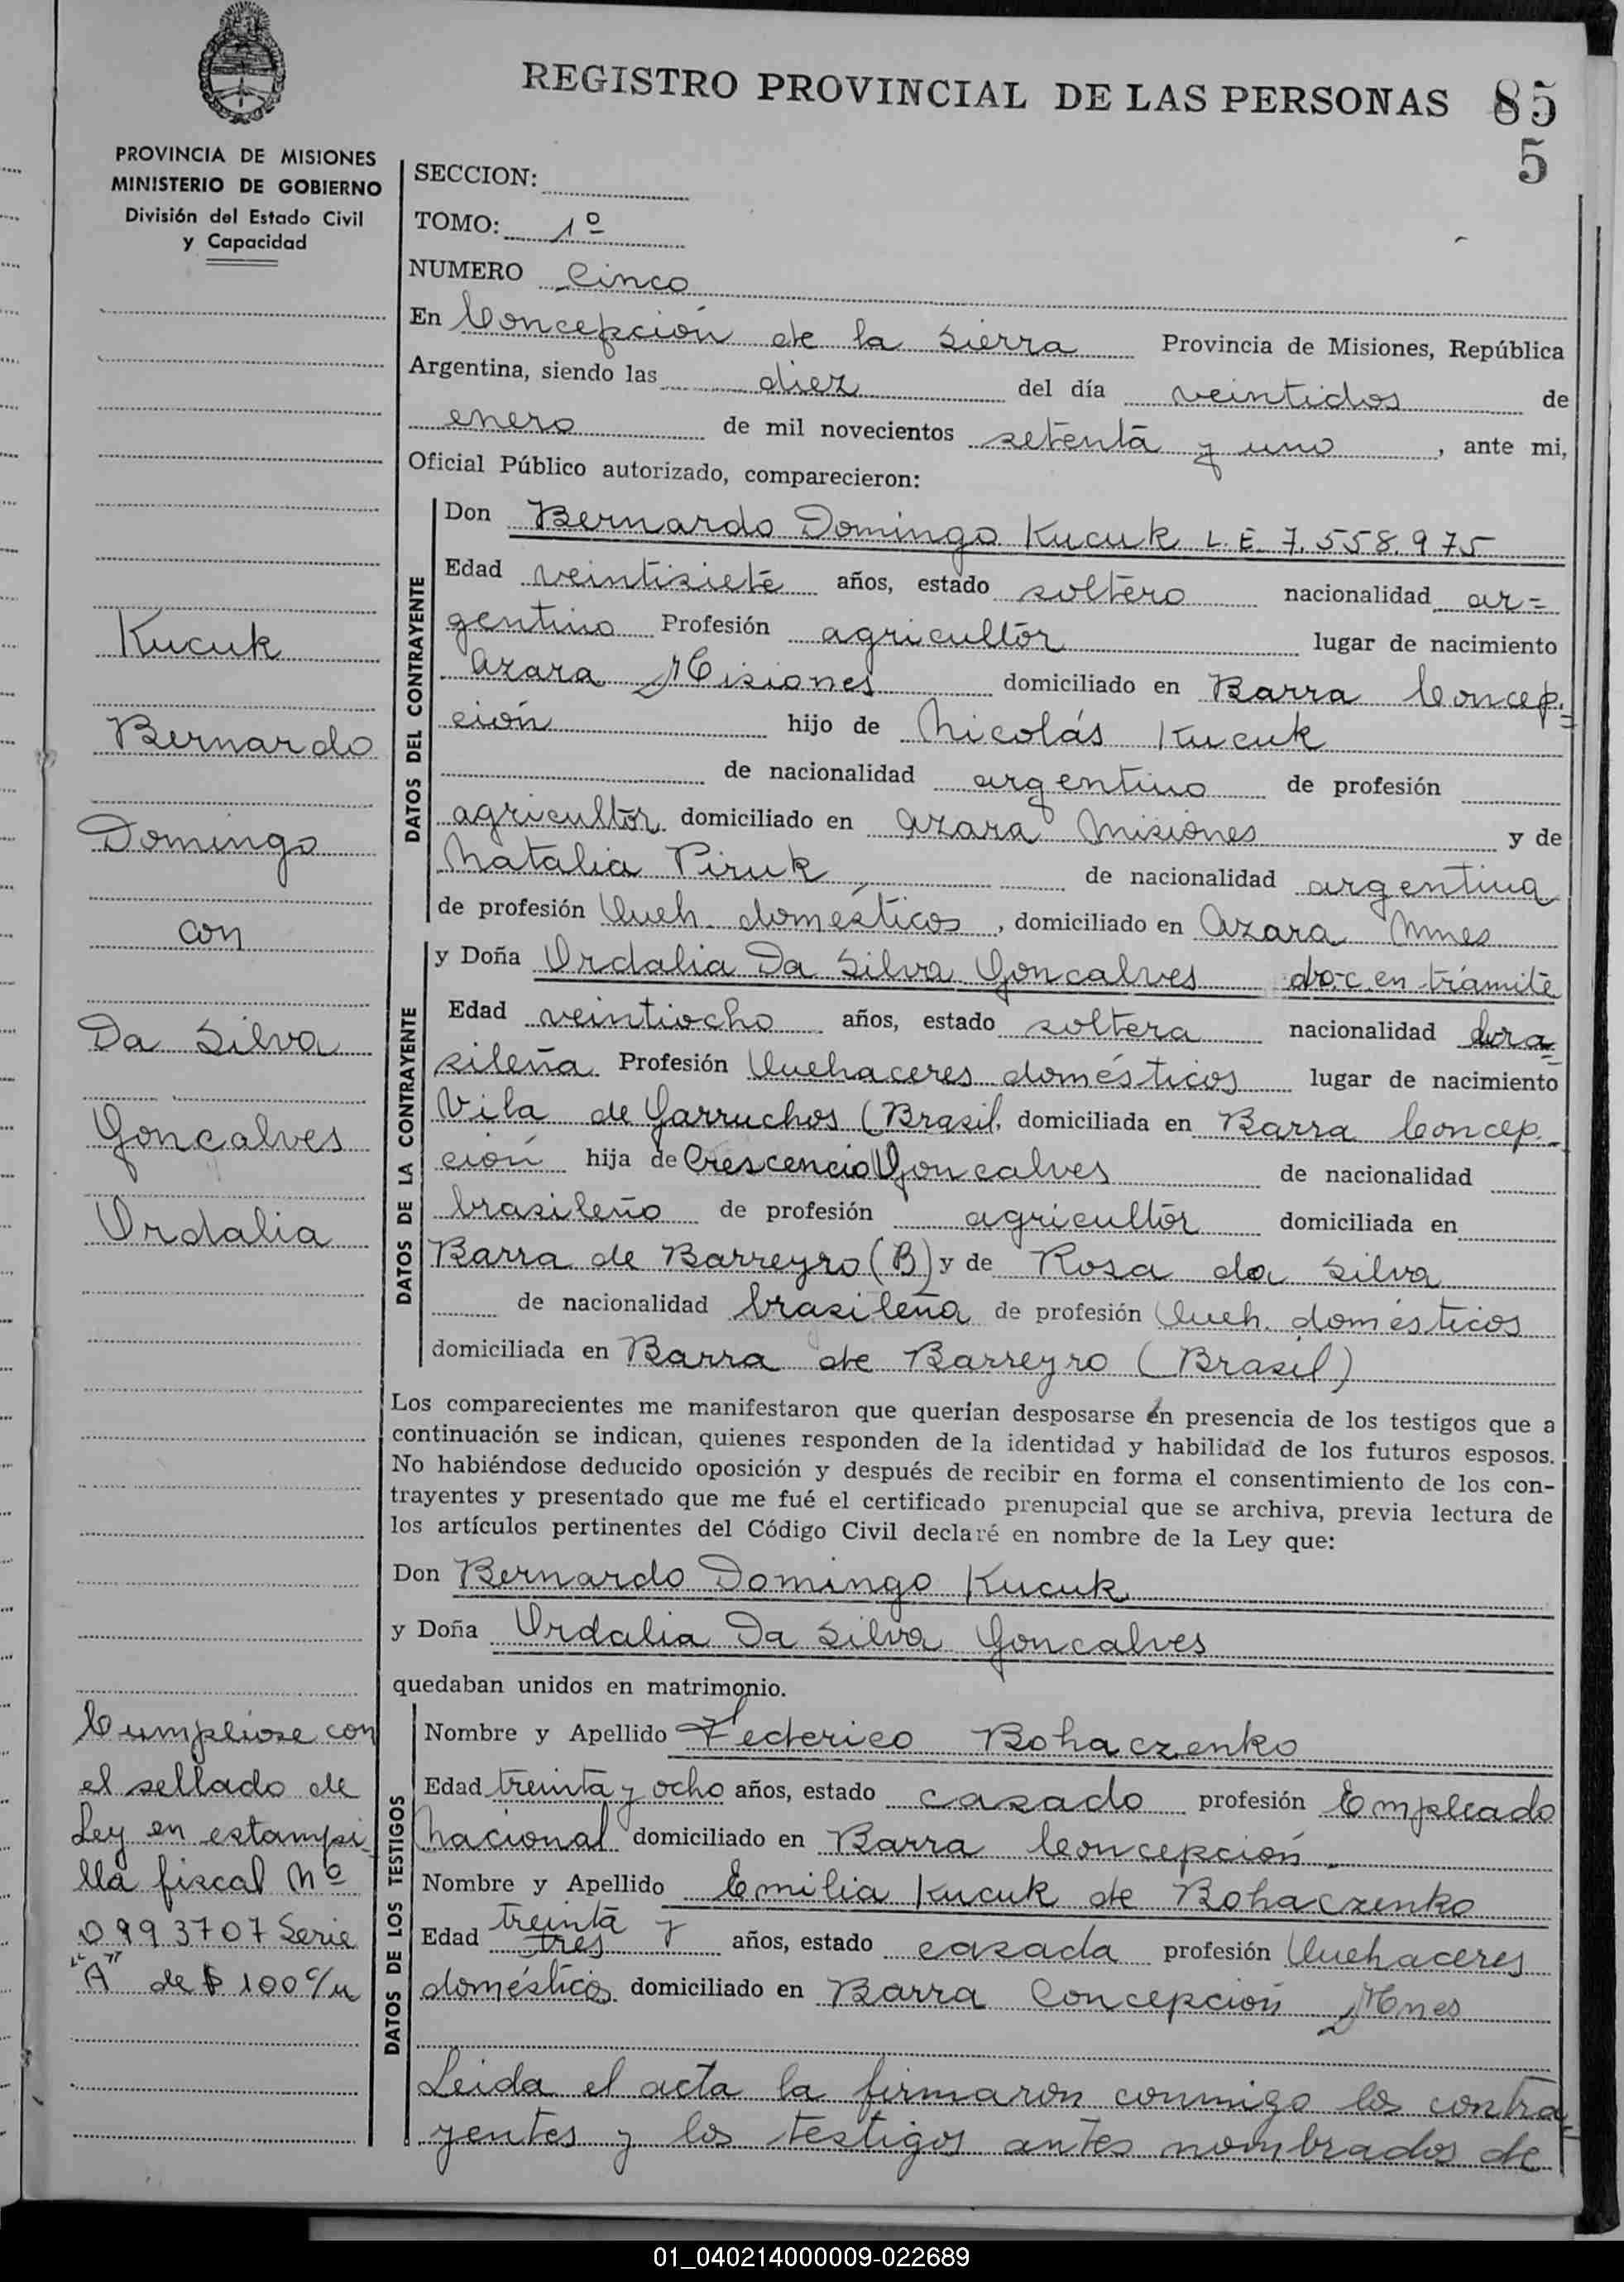 REGISTRO PROVINCIAL DE LAS PERSONAS 85
5
PROVINCIA DE MISIONES
MINISTERIO DE GOBIERNO
División del Estado Civil
y Capacidad
SECCION:
TOMO: 1º
NUMERO Cinco
En Concepción de la Sierra Provincia de Misiones, República
Argentina, siendo las diez del día veintidos de
enero de mil novecientos setenta y uno, ante mi,
Oficial Público autorizado, comparecieron:
DATOS DEL CONTRAYENTE
Don Bernardo Domingo Kucuk L.E. 7.558.975
Edad veintisiete años, estado soltero nacionalidad ar=
gentino Profesión agricultor lugar de nacimiento
Azara Misiones domiciliado en Barra Concep=
ción hijo de Nicolás Kucuk
de nacionalidad argentino de profesión
agricultor domiciliado en Azara Misiones y de
Natalia Piruk de nacionalidad argentina
de profesión Queh. domésticos, domiciliado en Azara Mnes
DATOS DE LA CONTRAYENTE
y Doña Ordalia Da Silva Goncalves doc en trámite
Edad veintiocho años, estado soltera nacionalidad bra=
sileña Profesión Quehaceres domésticos lugar de nacimiento
Vila de Garruchos (Brasil, domiciliada en Barra Concep=
ción hija de Crescencio Goncalves de nacionalidad
brasileño de profesión agricultor domiciliada en
Barra de Barreyro (B) y de Rosa da Silva
de nacionalidad brasileña de profesión Queh. domésticos
domiciliada en Barra de Barreyro (Brasil)
Los comparecientes me manifestaron que querían desposarse en presencia de los testigos que a
continuación se indican, quienes responden de la identidad y habilidad de los futuros esposos.
No habiéndose deducido oposición y después de recibir en forma el consentimiento de los con-
trayentes y presentado que me fué el certificado prenupcial que se archiva, previa lectura de
los artículos pertinentes del Código Civil declaré en nombre de la Ley que:
Don Bernardo Domingo Kucuk
y Doña Ordalia Da Silva Goncalves
quedaban unidos en matrimonio.
DATOS DE LOS TESTIGOS
Nombre y Apellido Federico Bohaczenko
Edad treinta y ocho años, estado casado profesión Empleado
Nacional domiciliado en Barra Concepción
Nombre y Apellido Emilia Kucuk de Bohaczenko
Edad treinta y
tres años, estado casada profesión Quehaceres
domésticos domiciliado en Barra Concepción Mnes
Leida el acta la firmaron conmigo los contra=
yentes y los testigos antes nombrados de
Kucuk
Bernardo
Domingo
con
Da Silva
Goncalves
Ordalia
Cumpliose con
el sellado de
Ley en estampi=
lla fiscal Nº
0993707 Serie
"A" de $ 100 
01_040214000009-022689